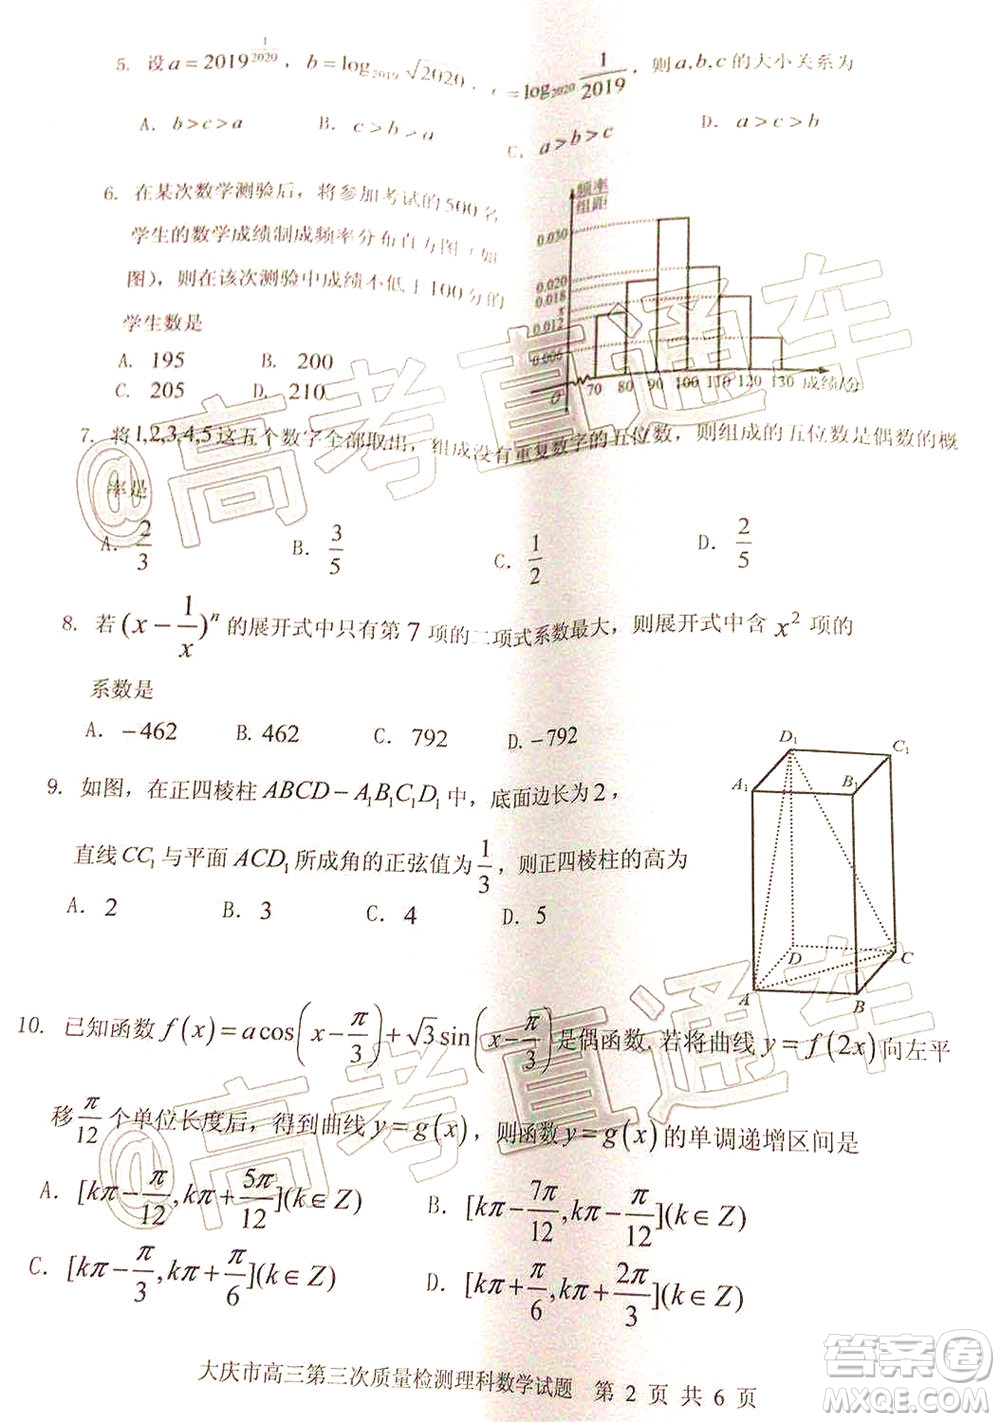 5. 设 a = 2019^{1/2020}, b = log_{2019} √2020, c = log_{2020} 1/2019, 则 a,b,c 的大小关系为
A. b > c > a B. c > b > a C. a > b > c D. a > c > b
6. 在某次数学测验后，将参加考试的500名
学生的数学成绩制成频率分布直方图（如
图），则在该次测验中成绩不低于100分的
学生数是
A. 195 B. 200
C. 205 D. 210
频率
组距
0.030
0.020
0.018
x
0.012
0.006
O 70 80 90 100 110 120 130 成绩/分
7. 将1,2,3,4,5这五个数字全部取出，组成没有重复数字的五位数，则组成的五位数是偶数的概
率是
A. 2/3 B. 3/5 C. 1/2 D. 2/5
8. 若 (x − 1/x)^n 的展开式中只有第 7 项的二项式系数最大，则展开式中含 x² 项的
系数是
A. −462 B. 462 C. 792 D. −792
9. 如图，在正四棱柱 ABCD − A₁B₁C₁D₁ 中，底面边长为 2，
直线 CC₁ 与平面 ACD₁ 所成角的正弦值为 1/3，则正四棱柱的高为
A. 2 B. 3 C. 4 D. 5
D₁ C₁
A₁ B₁
D C
A B
10. 已知函数 f(x) = a cos(x − π/3) + √3 sin(x − π/3) 是偶函数. 若将曲线 y = f(2x) 向左平
移 π/12 个单位长度后，得到曲线 y = g(x)，则函数 y = g(x) 的单调递增区间是
A. [kπ − π/12, kπ + 5π/12](k ∈ Z) B. [kπ − 7π/12, kπ − π/12](k ∈ Z)
C. [kπ − π/3, kπ + π/6](k ∈ Z) D. [kπ + π/6, kπ + 2π/3](k ∈ Z)
大庆市高三第三次质量检测理科数学试题 第 2 页 共 6 页
@高考直通车
@高考直通车
答案圈
MXQE.COM